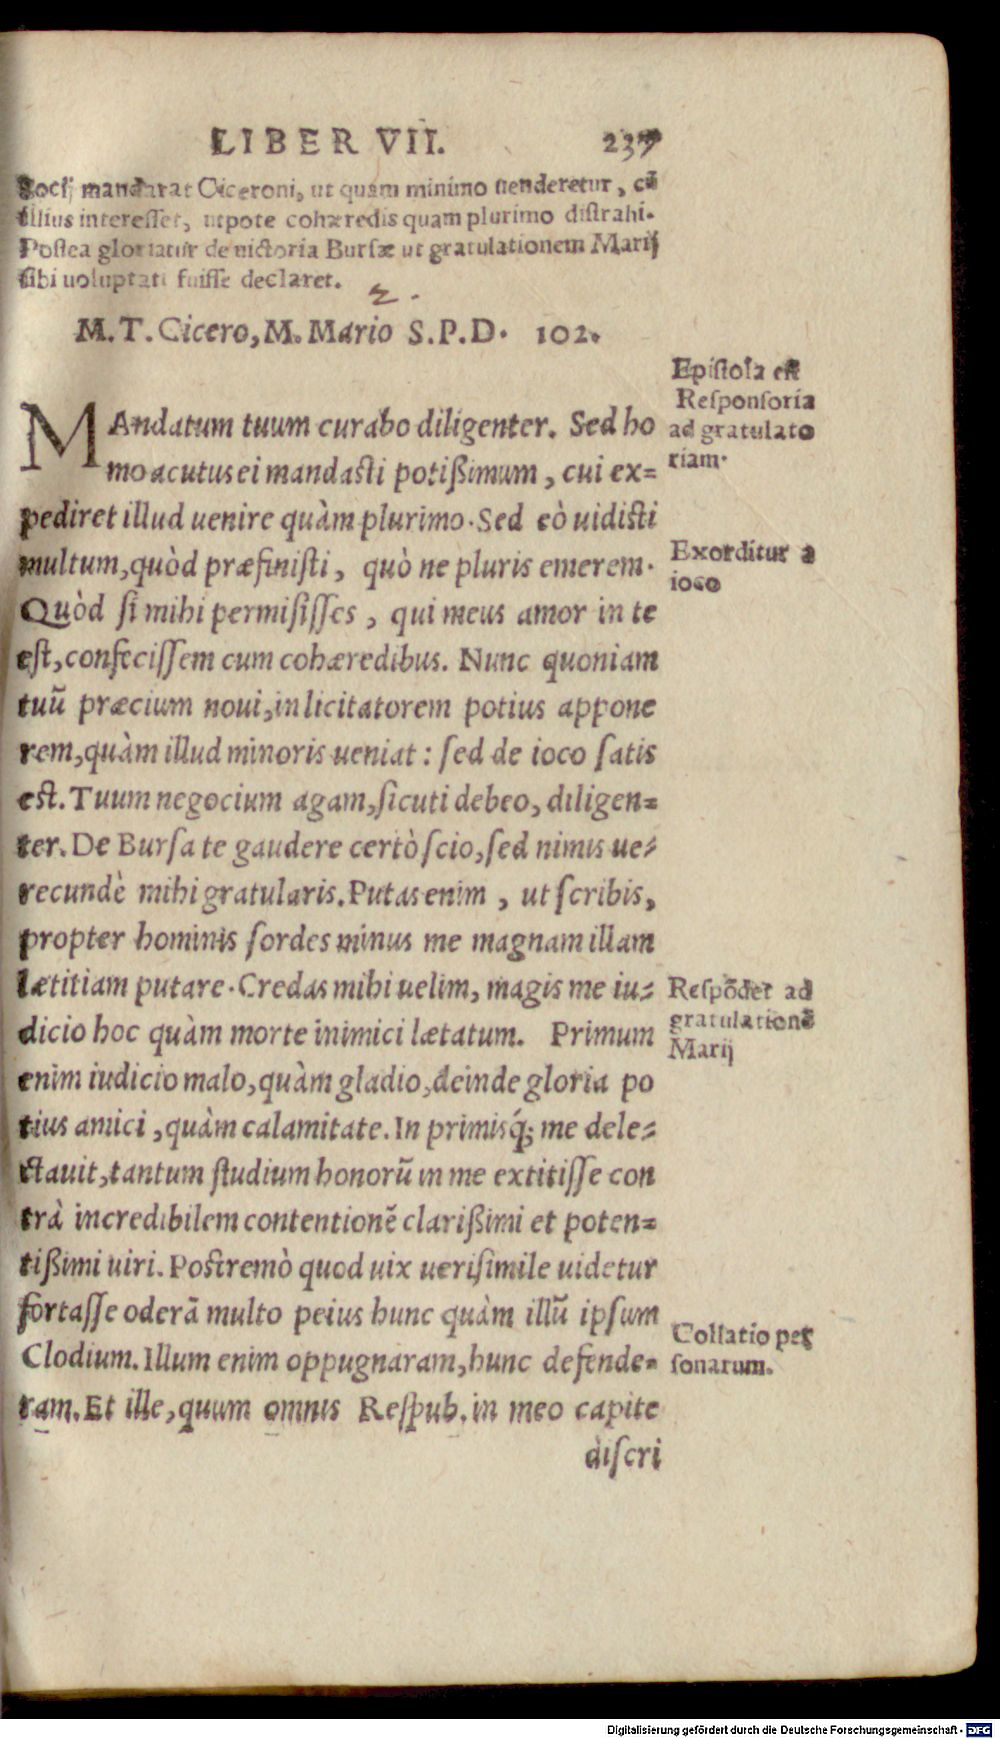 LIBER VII. 237
socij mandarat Ciceroni, ut quàm minimo uenderetur, cũ
illius interesset, utpote cohæredis quam plurimo distrahi.
Postea gloriatur de uictoria Bursæ ut gratulationem Marij
sibi uoluptati fuisse declaret.
2.
M. T. Cicero, M. Mario S. P. D. 102.
MAndatum tuum curabo diligenter. Sed ho
mo acutus ei mandasti potißimum, cui ex=
pediret illud uenire quàm plurimo. Sed eò uidisti
multum, quòd præfinisti, quò ne pluris emerem.
Quòd si mihi permisisses, qui meus amor in te
est, confecissem cum cohæredibus. Nunc quoniam
tuũ præcium noui, inlicitatorem potius appone
rem, quàm illud minoris ueniat: sed de ioco satis
est. Tuum negocium agam, sicuti debeo, diligen=
ter. De Bursa te gaudere certò scio, sed nimis ue=
recundè mihi gratularis. Putas enim, ut scribis,
propter hominis sordes minus me magnam illam
lætitiam putare. Credas mihi uelim, magis me iu=
dicio hoc quàm morte inimici lætatum. Primum
enim iudicio malo, quàm gladio, deinde gloria po
tius amici, quàm calamitate. In primisq́; me dele=
ctauit, tantum studium honorũ in me extitisse con
trà incredibilem contentionẽ clarißimi et poten=
tißimi uiri. Postremò quod uix uerisimile uidetur
fortasse oderã multo peius hunc quàm illũ ipsum
Clodium. Illum enim oppugnaram, hunc defende=
ram. Et ille, quum omnis Respub. in meo capite
discri
Epistola est
Responsoria
ad gratulato
riam.
Exorditur a
ioco
Respõdet ad
gratulationẽ
Marij
Collatio per
sonarum.
Digitalisierung gefördert durch die Deutsche Forschungsgemeinschaft - DFG